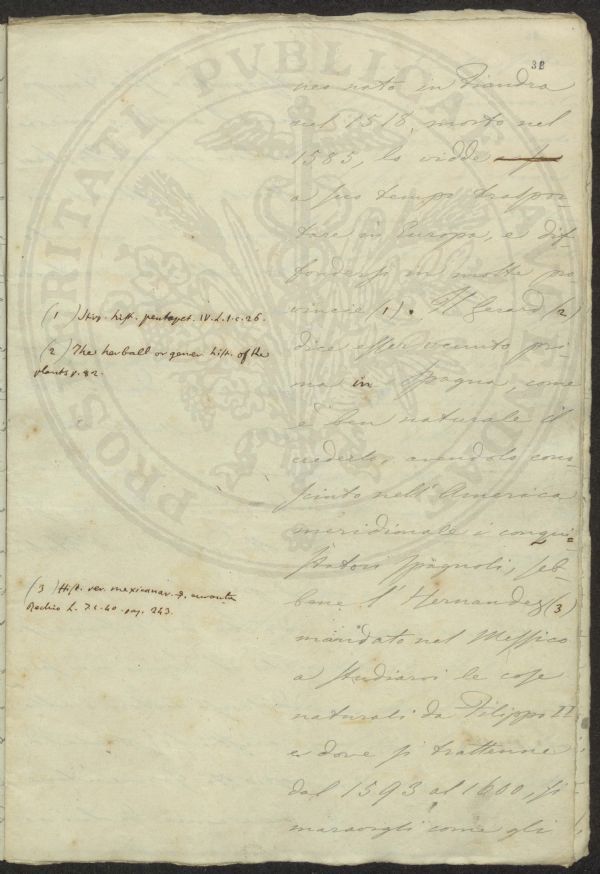 38
neo nato in Fiandra
nel 1518, morto nel
1585, lo vidde
a suo tempo traspor-
tare in Europa, e dif-
fondersi in molte pro
vincie (1). Il Gerard (2)
dice esser venuto pri-
ma in Spagna, come
è ben naturale il
crederlo, avendolo cono-
sciuto nell'America
meridionale i conqui-
statori Spagnoli, seb-
bene l'Hernandez (3)
mandato nel Messico
a studiarvi le cose
naturali da Filippo II
e dove si trattenne
dal 1593 al 1600, si
maravigli come gli
(1) Stirp. hist. pentapt. IV. L. 1. c. 26.
(2) The herball or gener. hist. of the
plants p. 82.
(3) Hist. rer. mexicanar.
Recchio L. 7 c. 40. pag. 243.
PROSPERITATI PUBLICAE AUGENDAE